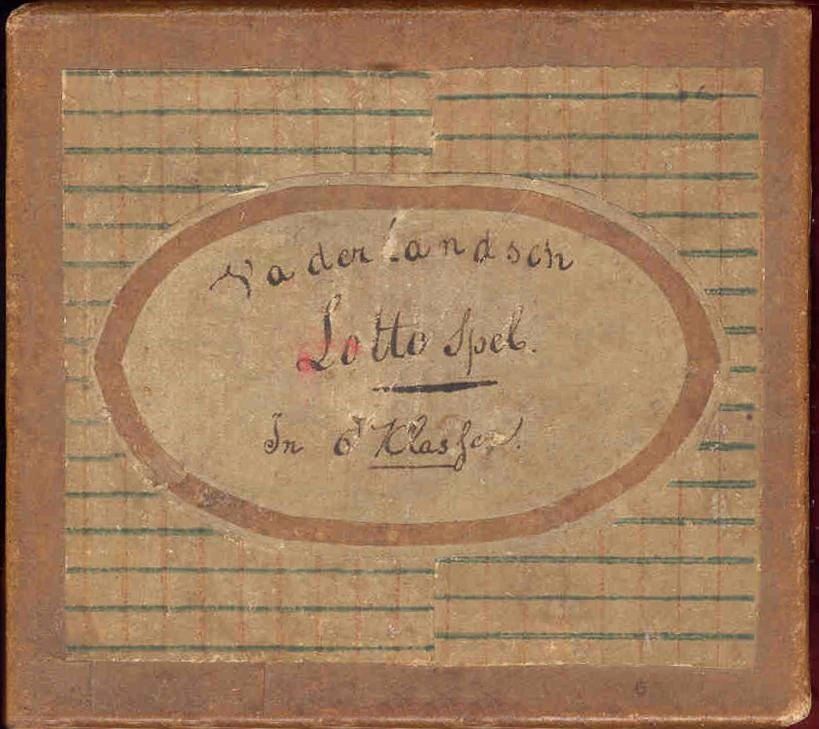 Vaderlandsch
Lotto Spel.
In 6 Klassen.
6